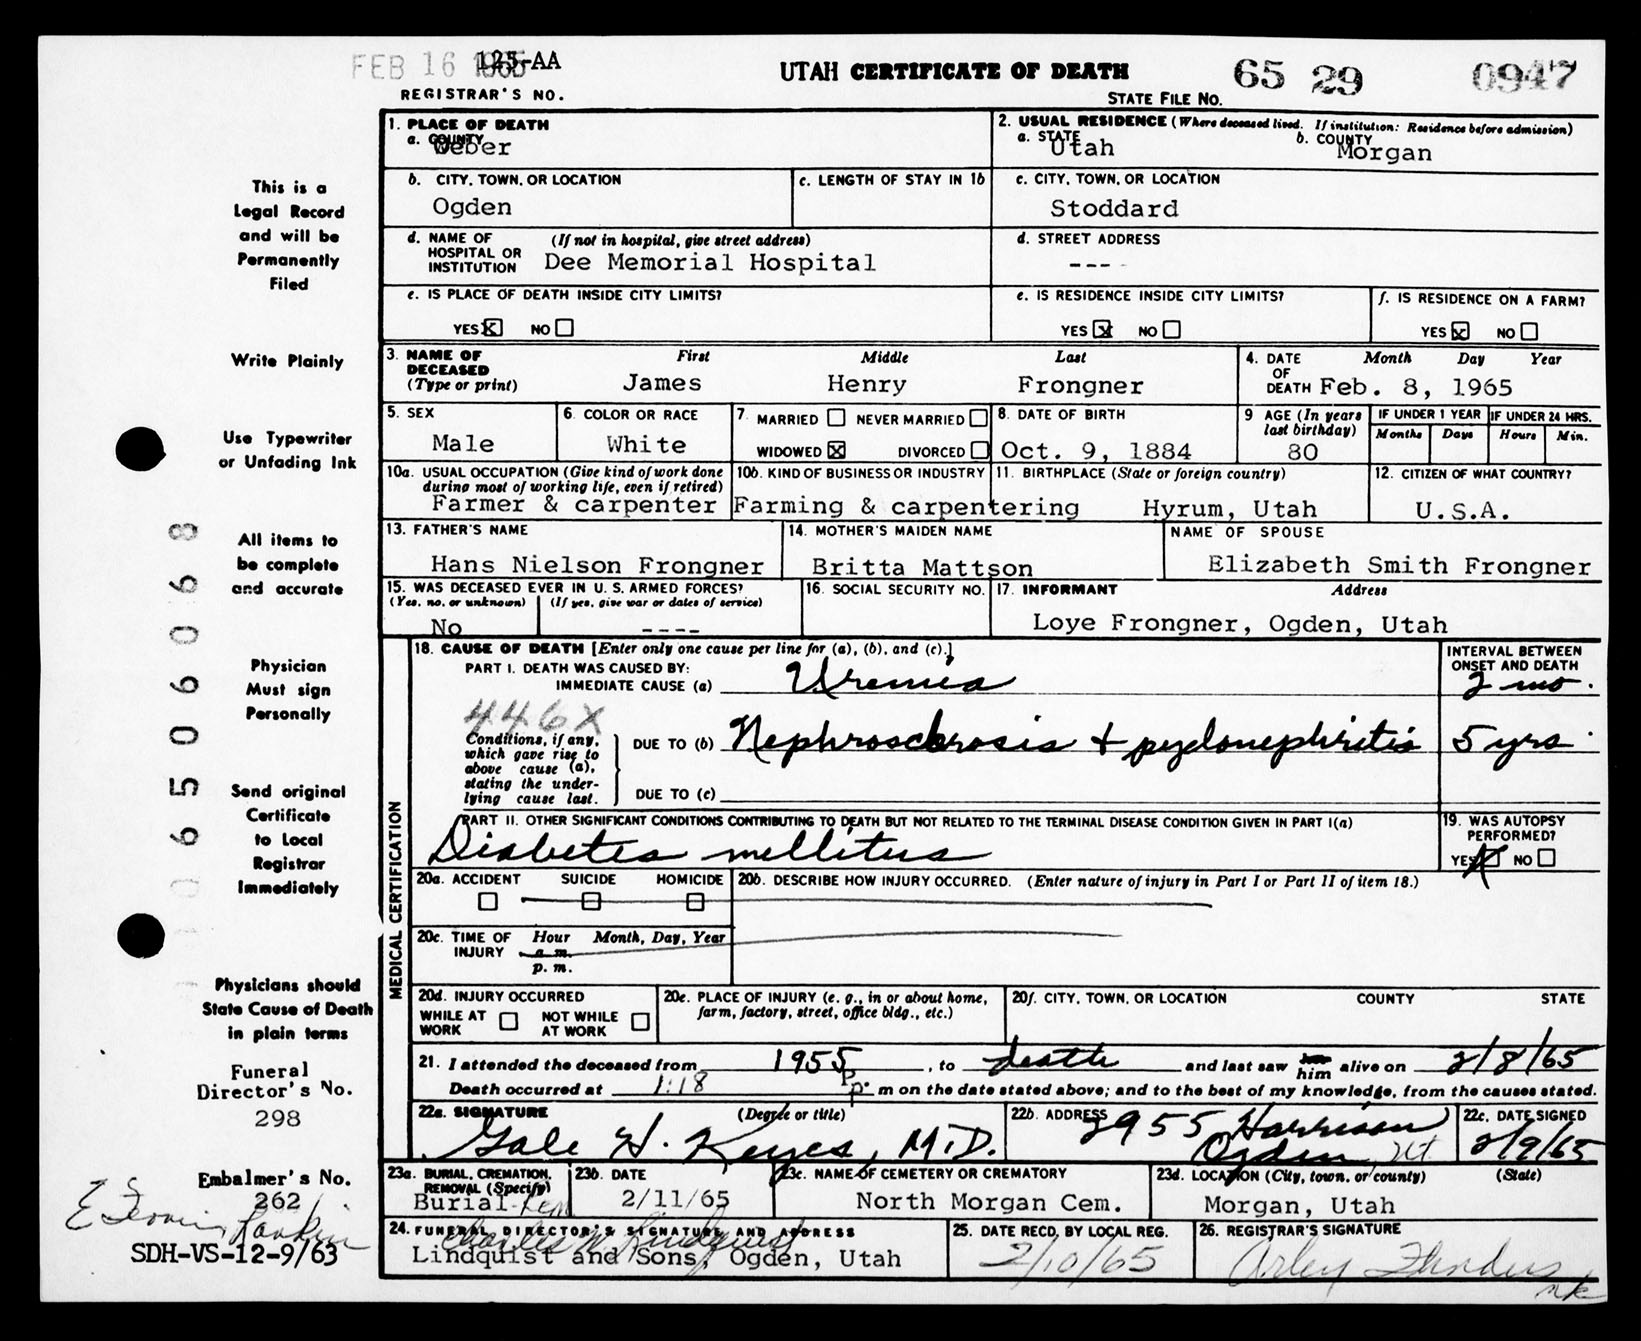 FEB 16 1965 125-AA
REGISTRAR'S NO.
UTAH CERTIFICATE OF DEATH
STATE FILE NO. 65 29 0947
This is a
Legal Record
and will be
Permanently
Filed
Write Plainly
Use Typewriter
or Unfading Ink
All items to
be complete
and accurate
Physician
Must sign
Personally
Send original
Certificate
to Local
Registrar
Immediately
Physicians should
State Cause of Death
in plain terms
Funeral
Director's No.
298
Embalmer's No.
262
Rankin
SDH-VS-12-9/63
0 6 5 0 6 0 6 8
1. PLACE OF DEATH
a. COUNTY
Weber
2. USUAL RESIDENCE (Where deceased lived. If institution: Residence before admission)
a. STATE b. COUNTY
Utah Morgan
b. CITY, TOWN, OR LOCATION
Ogden
c. LENGTH OF STAY IN 1b
c. CITY, TOWN, OR LOCATION
Stoddard
d. NAME OF HOSPITAL OR INSTITUTION (If not in hospital, give street address)
Dee Memorial Hospital
d. STREET ADDRESS
----
e. IS PLACE OF DEATH INSIDE CITY LIMITS?
YES X NO
e. IS RESIDENCE INSIDE CITY LIMITS?
YES X NO
f. IS RESIDENCE ON A FARM?
YES X NO
3. NAME OF DECEASED (Type or print) First Middle Last
James Henry Frongner
4. DATE OF DEATH Month Day Year
Feb. 8, 1965
5. SEX
Male
6. COLOR OR RACE
White
7. MARRIED NEVER MARRIED
WIDOWED X DIVORCED
8. DATE OF BIRTH
Oct. 9, 1884
9 AGE (In years last birthday)
80
IF UNDER 1 YEAR IF UNDER 24 HRS.
Months Days Hours Min.
10a. USUAL OCCUPATION (Give kind of work done during most of working life, even if retired)
Farmer & carpenter
10b. KIND OF BUSINESS OR INDUSTRY
Farming & carpentering
11. BIRTHPLACE (State or foreign country)
Hyrum, Utah
12. CITIZEN OF WHAT COUNTRY?
U.S.A.
13. FATHER'S NAME
Hans Nielson Frongner
14. MOTHER'S MAIDEN NAME
Britta Mattson
NAME OF SPOUSE
Elizabeth Smith Frongner
15. WAS DECEASED EVER IN U. S. ARMED FORCES?
(Yes, no, or unknown) (If yes, give war or dates of service)
No ----
16. SOCIAL SECURITY NO.
17. INFORMANT Address
Loye Frongner, Ogden, Utah
MEDICAL CERTIFICATION
18. CAUSE OF DEATH [Enter only one cause per line for (a), (b), and (c).]
PART I. DEATH WAS CAUSED BY:
IMMEDIATE CAUSE (a) Uremia
INTERVAL BETWEEN ONSET AND DEATH
2 mo.
446X
Conditions, if any,
which gave rise to
above cause (a),
stating the under-
lying cause last.
DUE TO (b) Nephrosclerosis + pyelonephritis 5 yrs.
DUE TO (c)
PART II. OTHER SIGNIFICANT CONDITIONS CONTRIBUTING TO DEATH BUT NOT RELATED TO THE TERMINAL DISEASE CONDITION GIVEN IN PART I(a)
Diabetes mellitus
19. WAS AUTOPSY PERFORMED?
YES X NO
20a. ACCIDENT SUICIDE HOMICIDE
20b. DESCRIBE HOW INJURY OCCURRED. (Enter nature of injury in Part I or Part II of item 18.)
20c. TIME OF INJURY Hour Month, Day, Year
a. m.
p. m.
20d. INJURY OCCURRED
WHILE AT WORK NOT WHILE AT WORK
20e. PLACE OF INJURY (e. g., in or about home, farm, factory, street, office bldg., etc.)
20f. CITY, TOWN, OR LOCATION COUNTY STATE
21. I attended the deceased from 1955, to death and last saw him alive on 2/8/65
Death occurred at 1:18 P. m on the date stated above; and to the best of my knowledge, from the causes stated.
22a. SIGNATURE (Degree or title)
Gale H. Keyes, M.D.
22b. ADDRESS
2955 Harrison
Ogden Ut
22c. DATE SIGNED
2/9/65
23a. BURIAL, CREMATION, REMOVAL (Specify)
Burial-Rem
23b. DATE
2/11/65
23c. NAME OF CEMETERY OR CREMATORY
North Morgan Cem.
23d. LOCATION (City, town, or county) (State)
Morgan, Utah
24. FUNERAL DIRECTOR'S SIGNATURE AND ADDRESS
Charles W Lindquist
Lindquist and Sons, Ogden, Utah
25. DATE RECD. BY LOCAL REG.
2/10/65
26. REGISTRAR'S SIGNATURE
Arley Flinders
nk